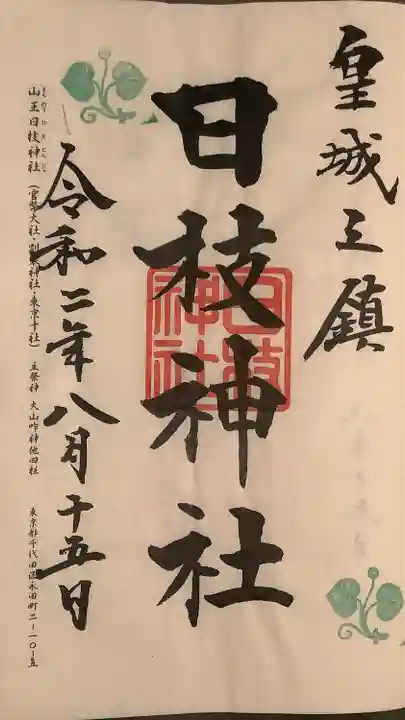 皇城之鎮
日枝神社
日枝神社
令和二年八月十五日
山王日枝神社(官幣大社・別表神社・東京十社) 主祭神 大山咋神他四柱 東京都千代田区永田町二-一〇-五